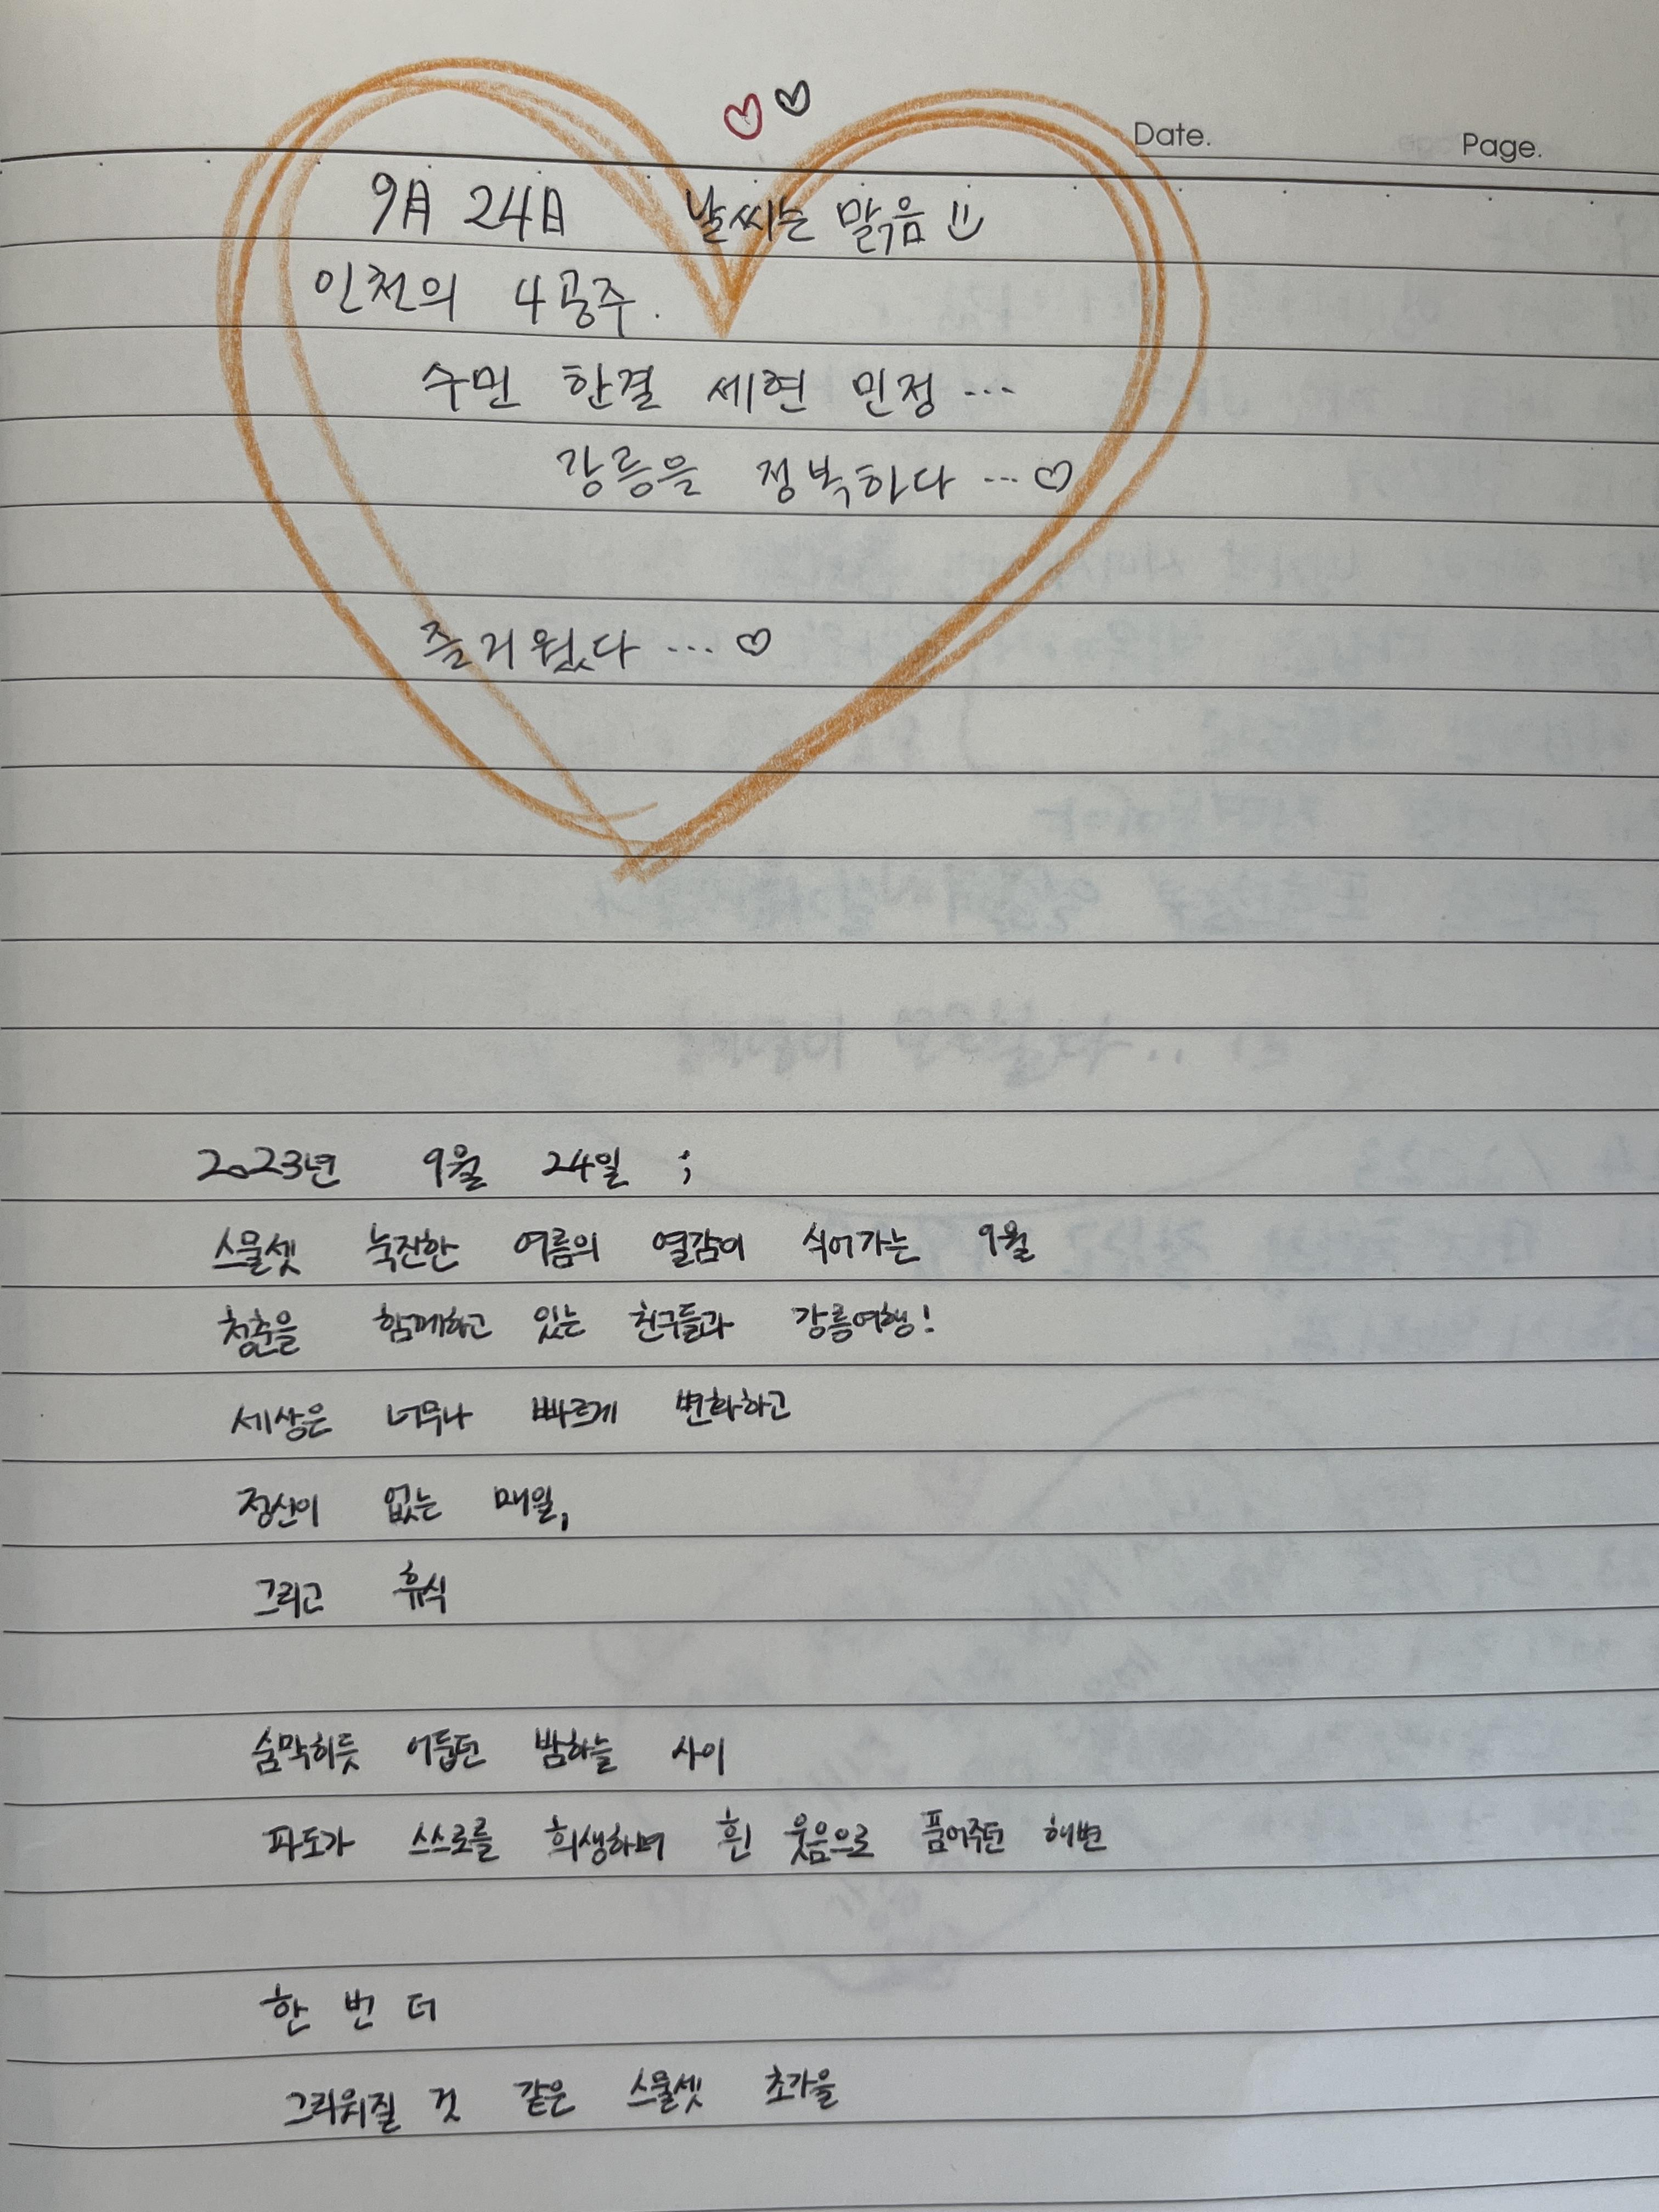 Date.
Page.
9月 24日 날씨는 맑음
인천의 4공주.
수민 한결 세현 민정 ...
강릉을 정복하다 ...♡
즐거웠다 ...♡
2023년 9월 24일 ;
스물셋 눅진한 여름의 열감이 식어가는 9월
청춘을 함께하고 있는 친구들과 강릉여행!
세상은 너무나 빠르게 변화하고
정신이 없는 매일,
그리고 휴식
숨막히듯 어둡던 밤하늘 사이
파도가 스스로를 희생하며 흰 웃음으로 품어주던 해변
한 번 더
그리워질 것 같은 스물셋 초가을